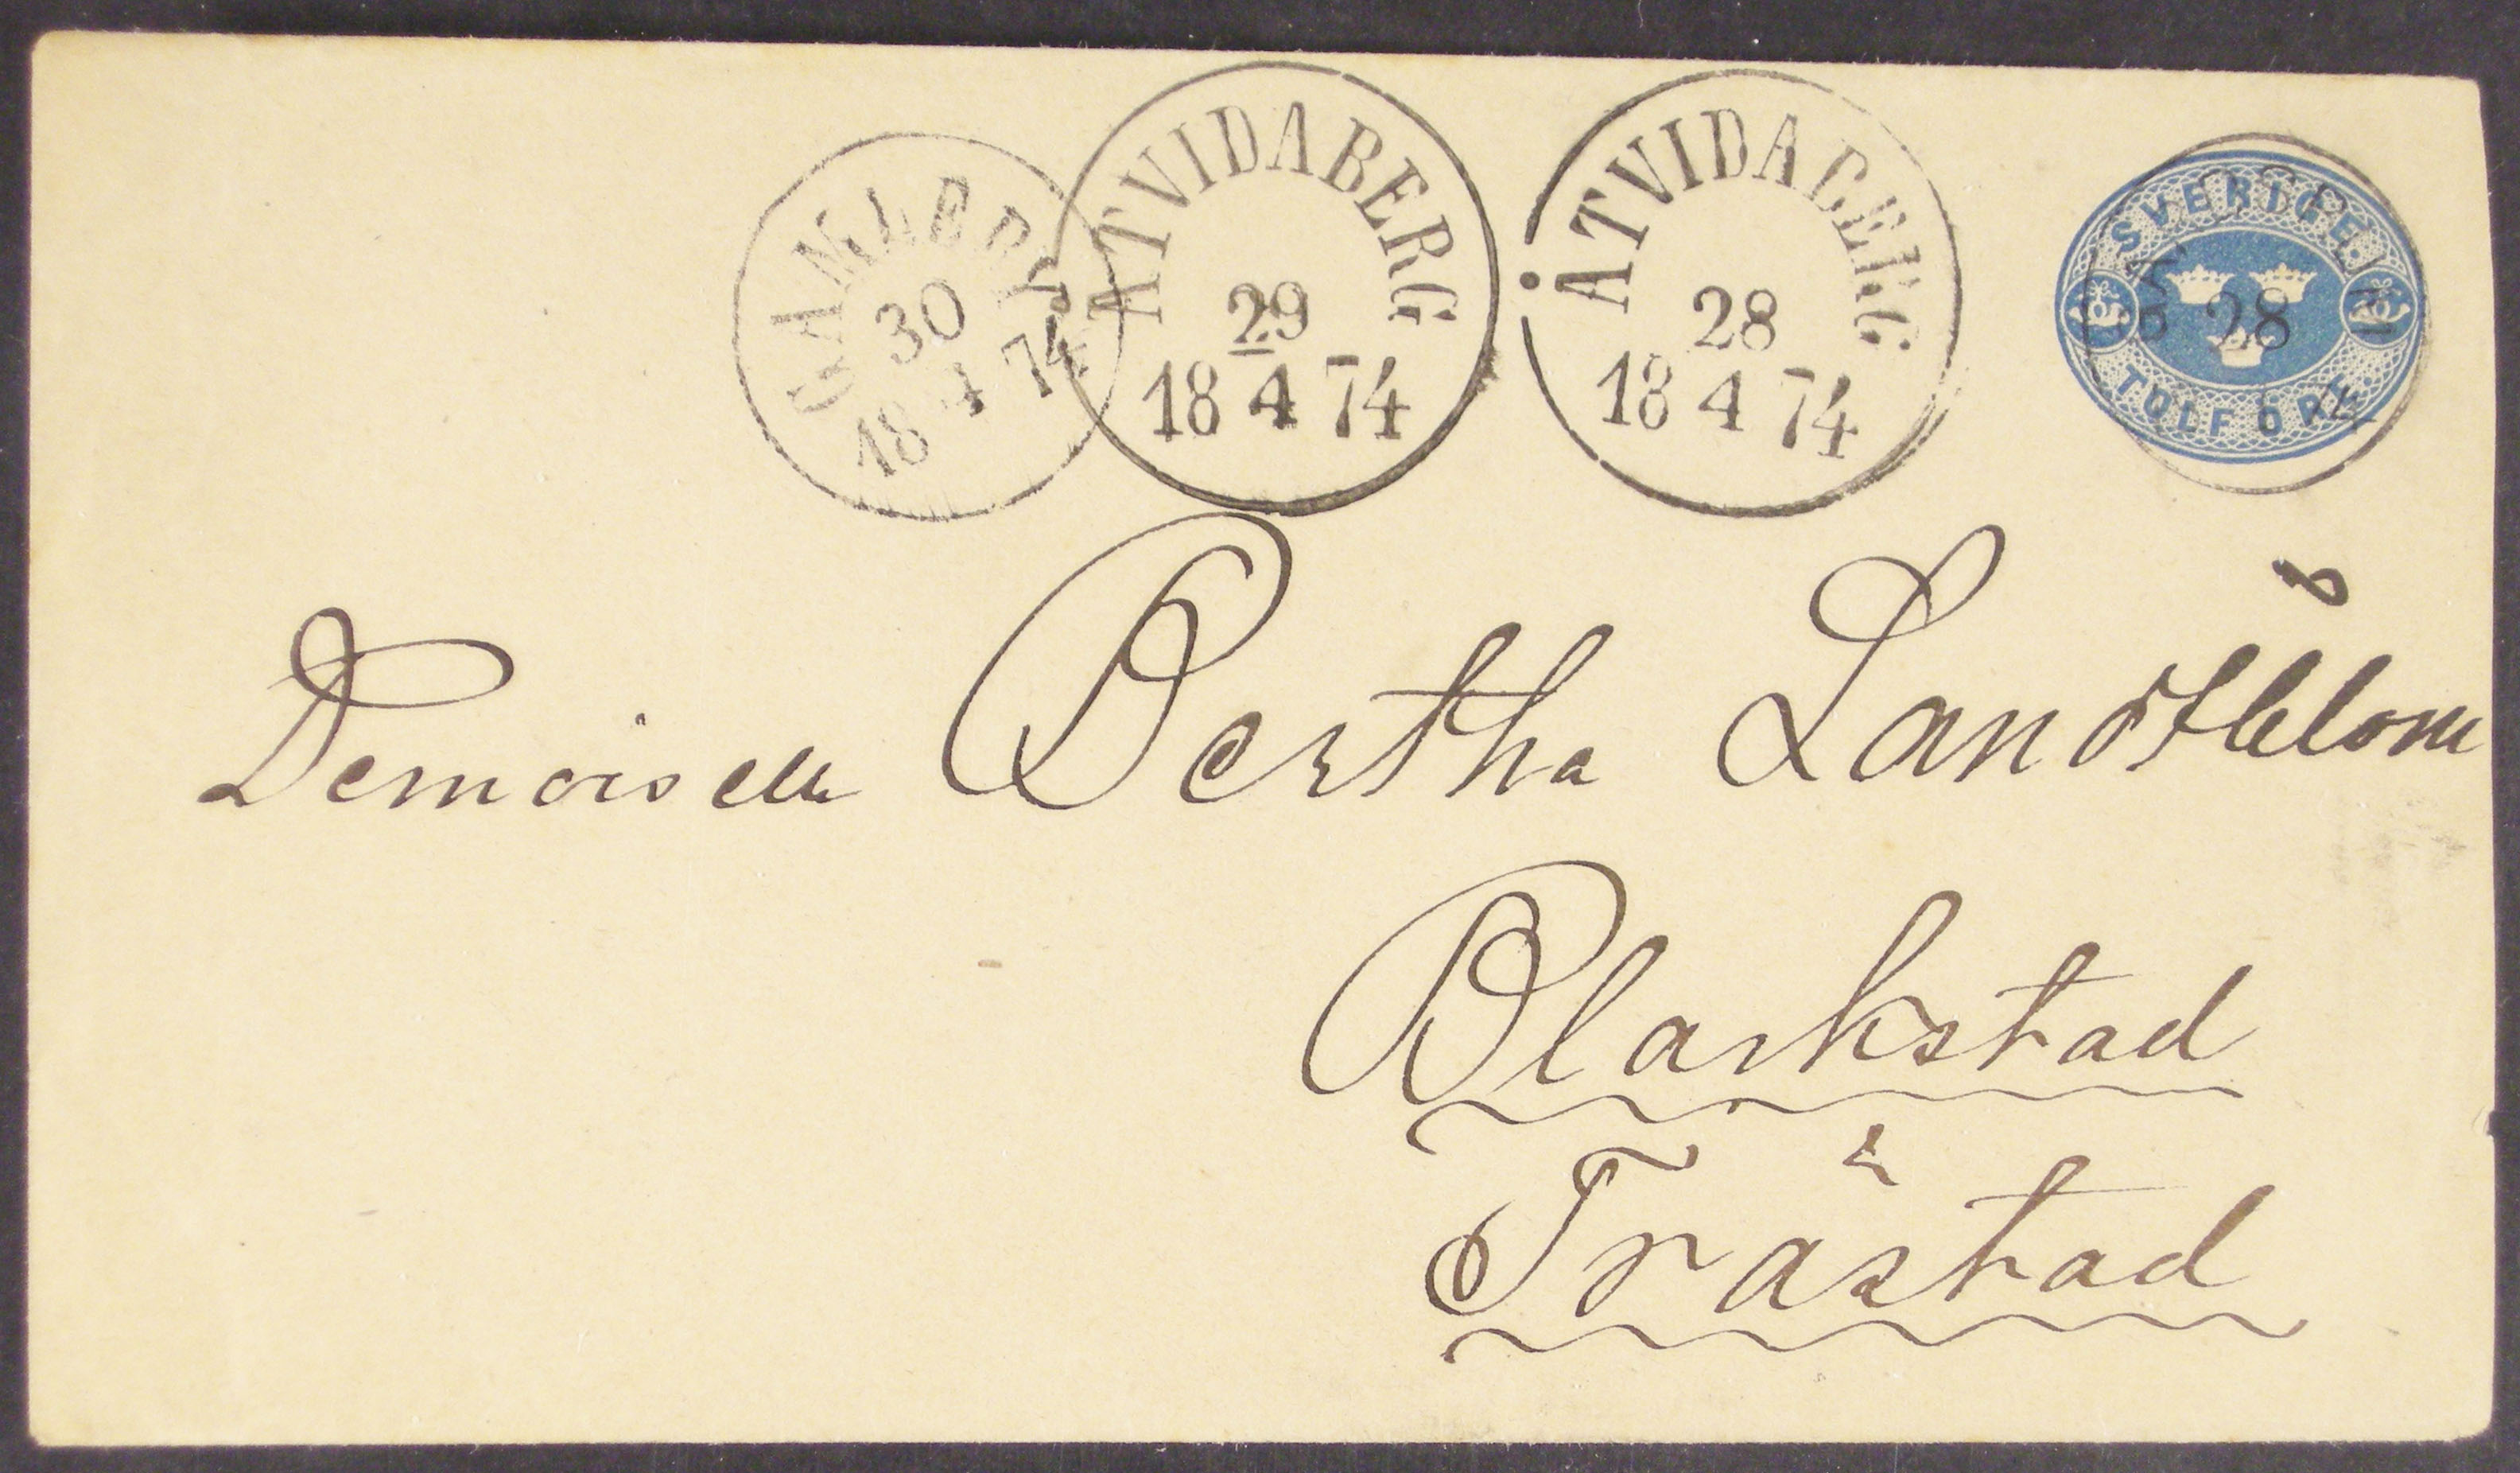 GAMLEBY
30
18 4 74
ÅTVIDABERG
29
18 4 74
ÅTVIDABERG
28
18 4 74
SVERIGE.
TOLF ÖRE.
28
Demoiselle Bertha
Blackstad
Tråstad